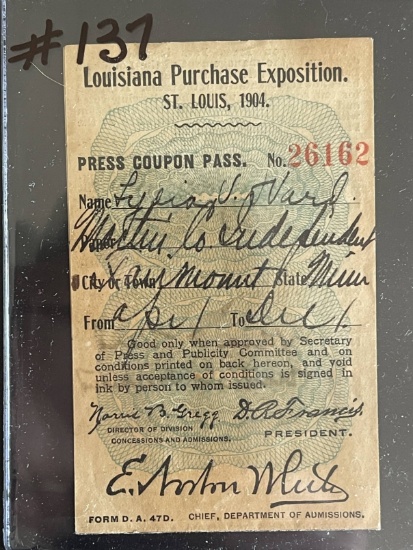 #137
Louisiana Purchase Exposition.
ST. LOUIS, 1904.
PRESS COUPON PASS. No. 26162
Name Lydia V. Ward.
Paper Martin Co Independent
City or Town Fairmount State Minn
From Apr 1 To Dec 1.
Good only when approved by Secretary
of Press and Publicity Committee and on
conditions printed on back hereon, and void
unless acceptance of conditions is signed in
ink by person to whom issued.
Norris B. Gregg D. R. Francis
DIRECTOR OF DIVISION
CONCESSIONS AND ADMISSIONS. PRESIDENT.
E. Norton White
FORM D. A. 47D. CHIEF, DEPARTMENT OF ADMISSIONS.